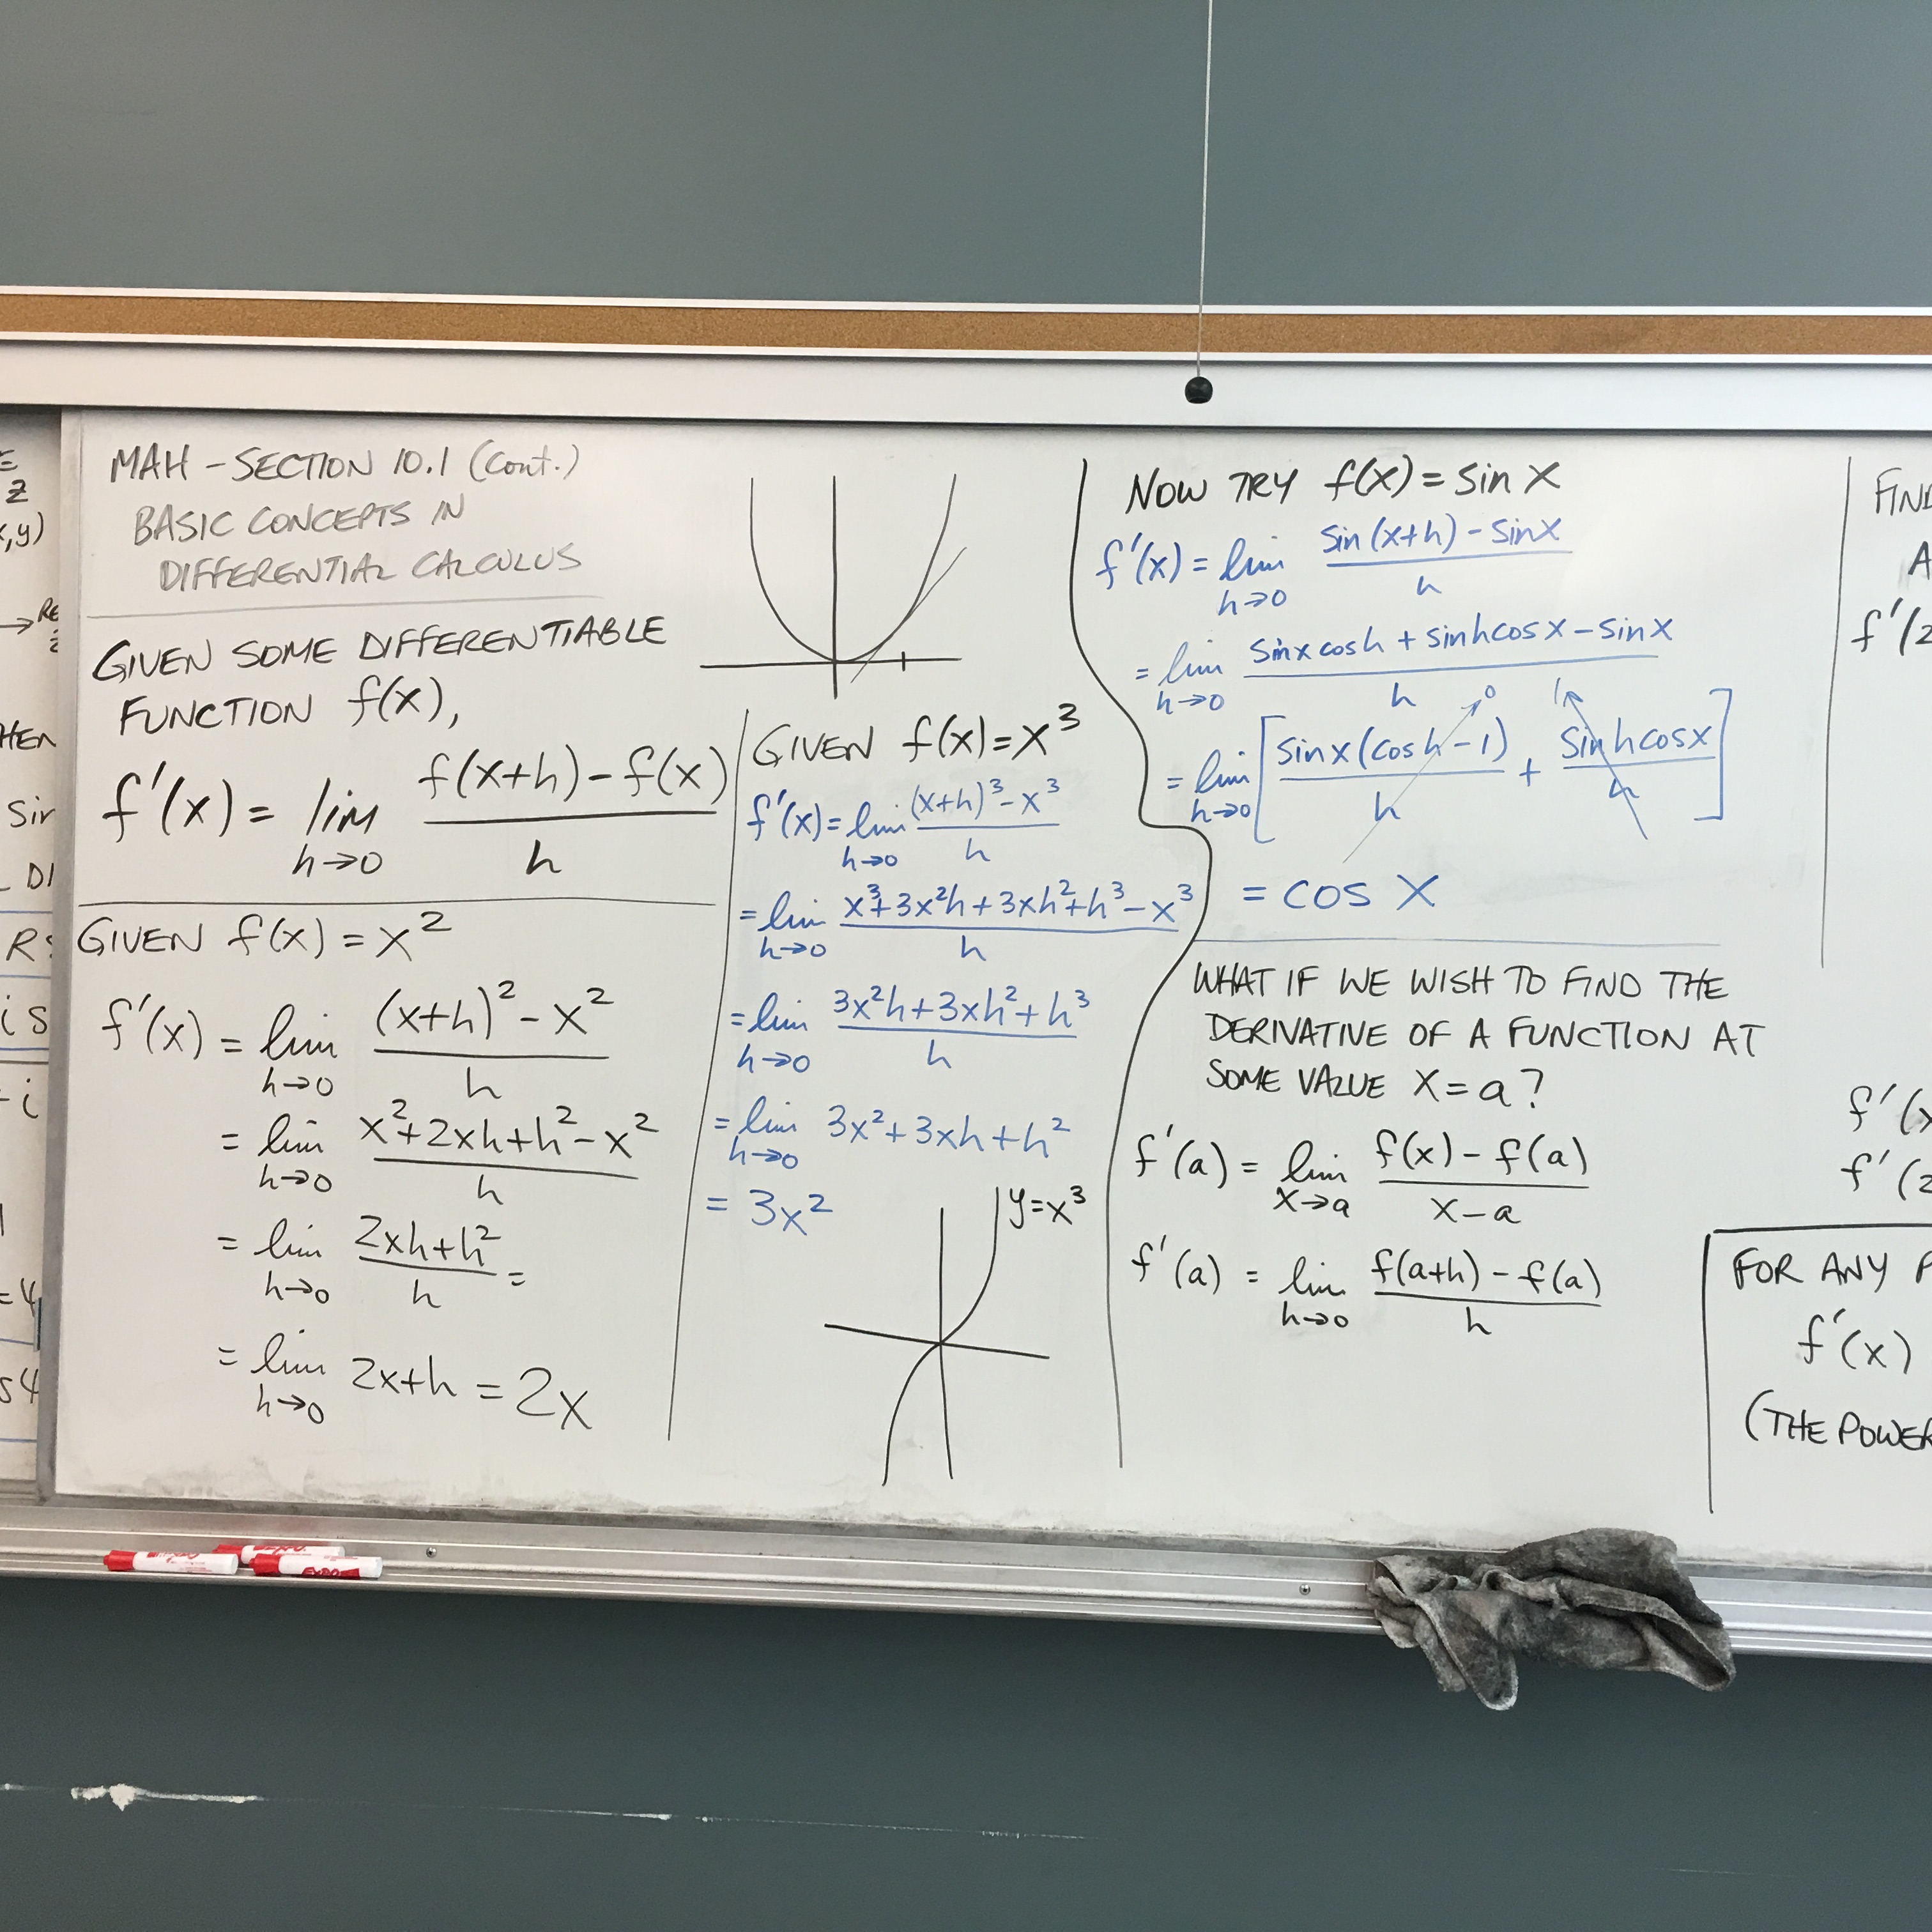 MAH - SECTION 10.1 (Cont.)
BASIC CONCEPTS IN
DIFFERENTIAL CALCULUS
GIVEN SOME DIFFERENTIABLE
FUNCTION f(x),
f'(x) = lim h→0 (f(x+h) - f(x)) / h
GIVEN f(x) = x²
f'(x) = lim h→0 ((x+h)² - x²) / h
= lim h→0 (x² + 2xh + h² - x²) / h
= lim h→0 (2xh + h²) / h =
= lim h→0 2x+h = 2x
GIVEN f(x) = x³
f'(x) = lim h→0 ((x+h)³ - x³) / h
= lim h→0 (x³ + 3x²h + 3xh² + h³ - x³) / h
= lim h→0 (3x²h + 3xh² + h³) / h
= lim h→0 3x² + 3xh + h²
= 3x²
y = x³
NOW TRY f(x) = sin x
f'(x) = lim h→0 (sin(x+h) - sin x) / h
= lim h→0 (sin x cos h + sin h cos x - sin x) / h
0 1
= lim h→0 [ (sin x (cos h - 1)) / h + (sin h cos x) / h ]
= cos x
WHAT IF WE WISH TO FIND THE
DERIVATIVE OF A FUNCTION AT
SOME VALUE x = a?
f'(a) = lim x→a (f(x) - f(a)) / (x - a)
f'(a) = lim h→0 (f(a+h) - f(a)) / h
FIND
A
f'(2
f'(x
f'(2
FOR ANY P
f'(x)
(THE POWER
EXPO